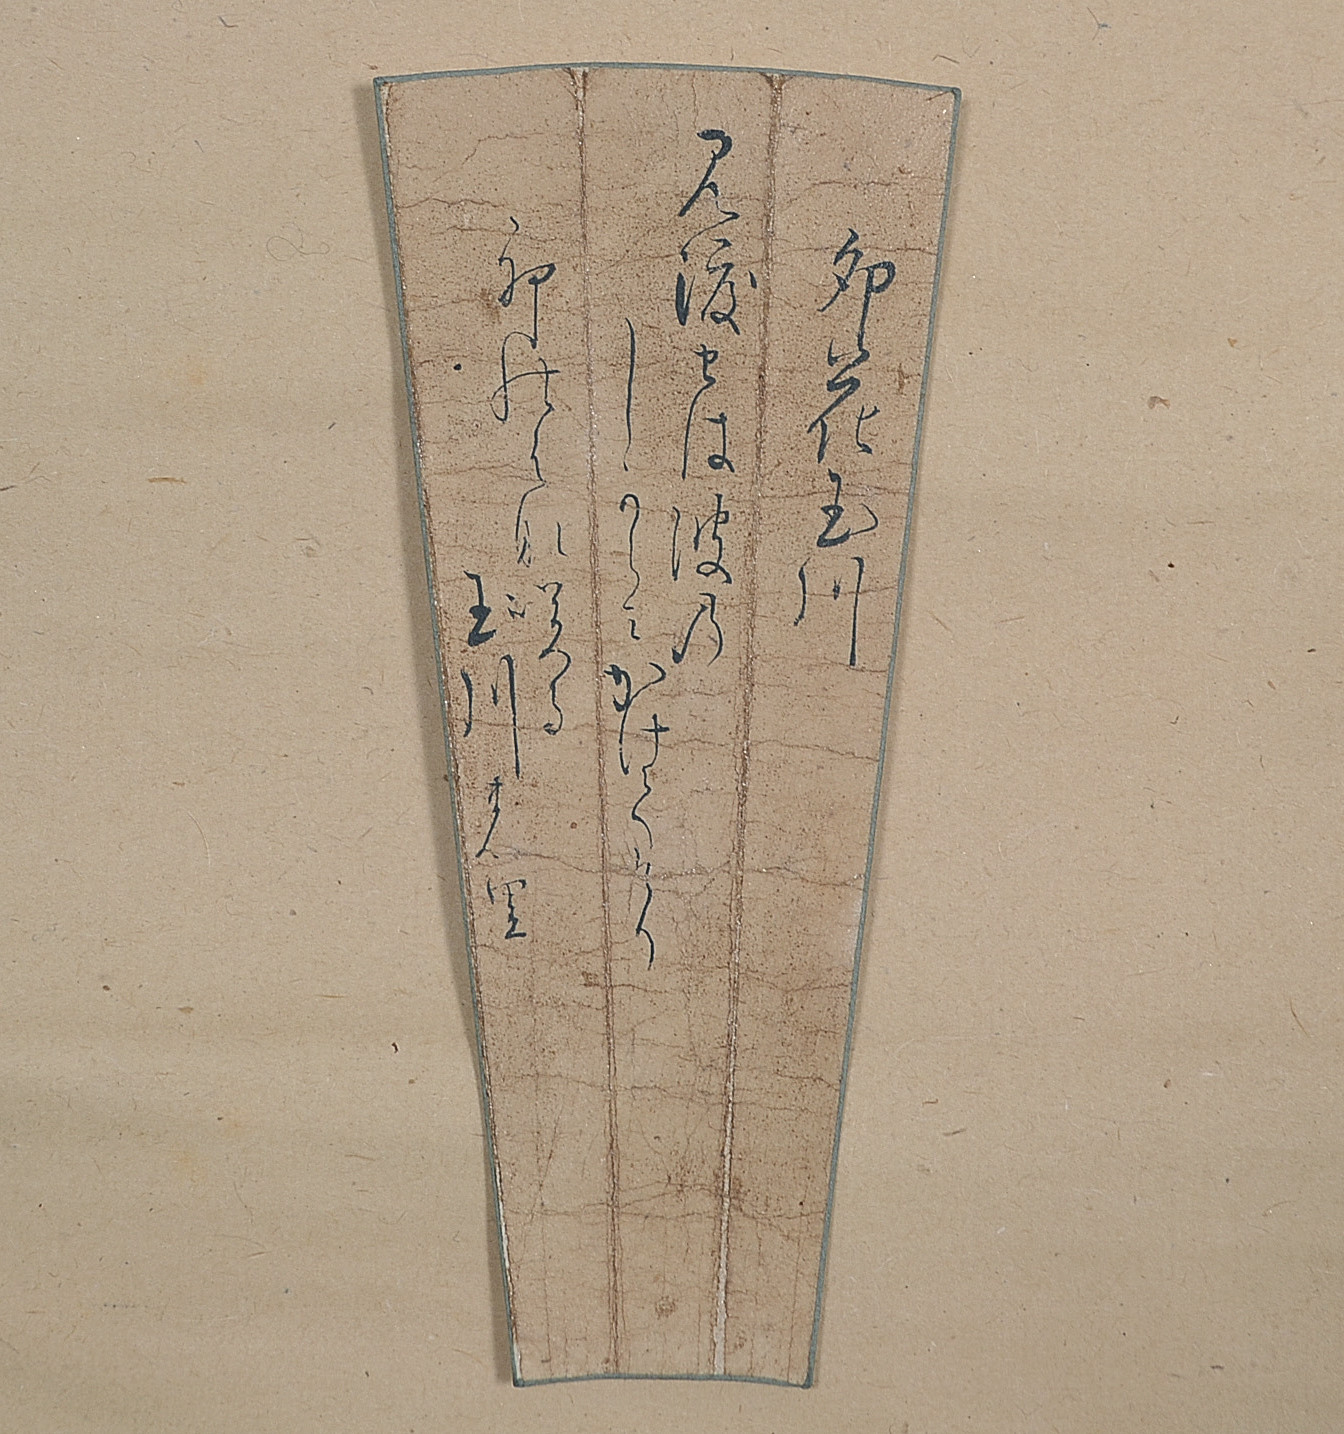 卯花玉川
見渡せは波乃
しからみかけてけり
卯能はな咲る
玉川の里